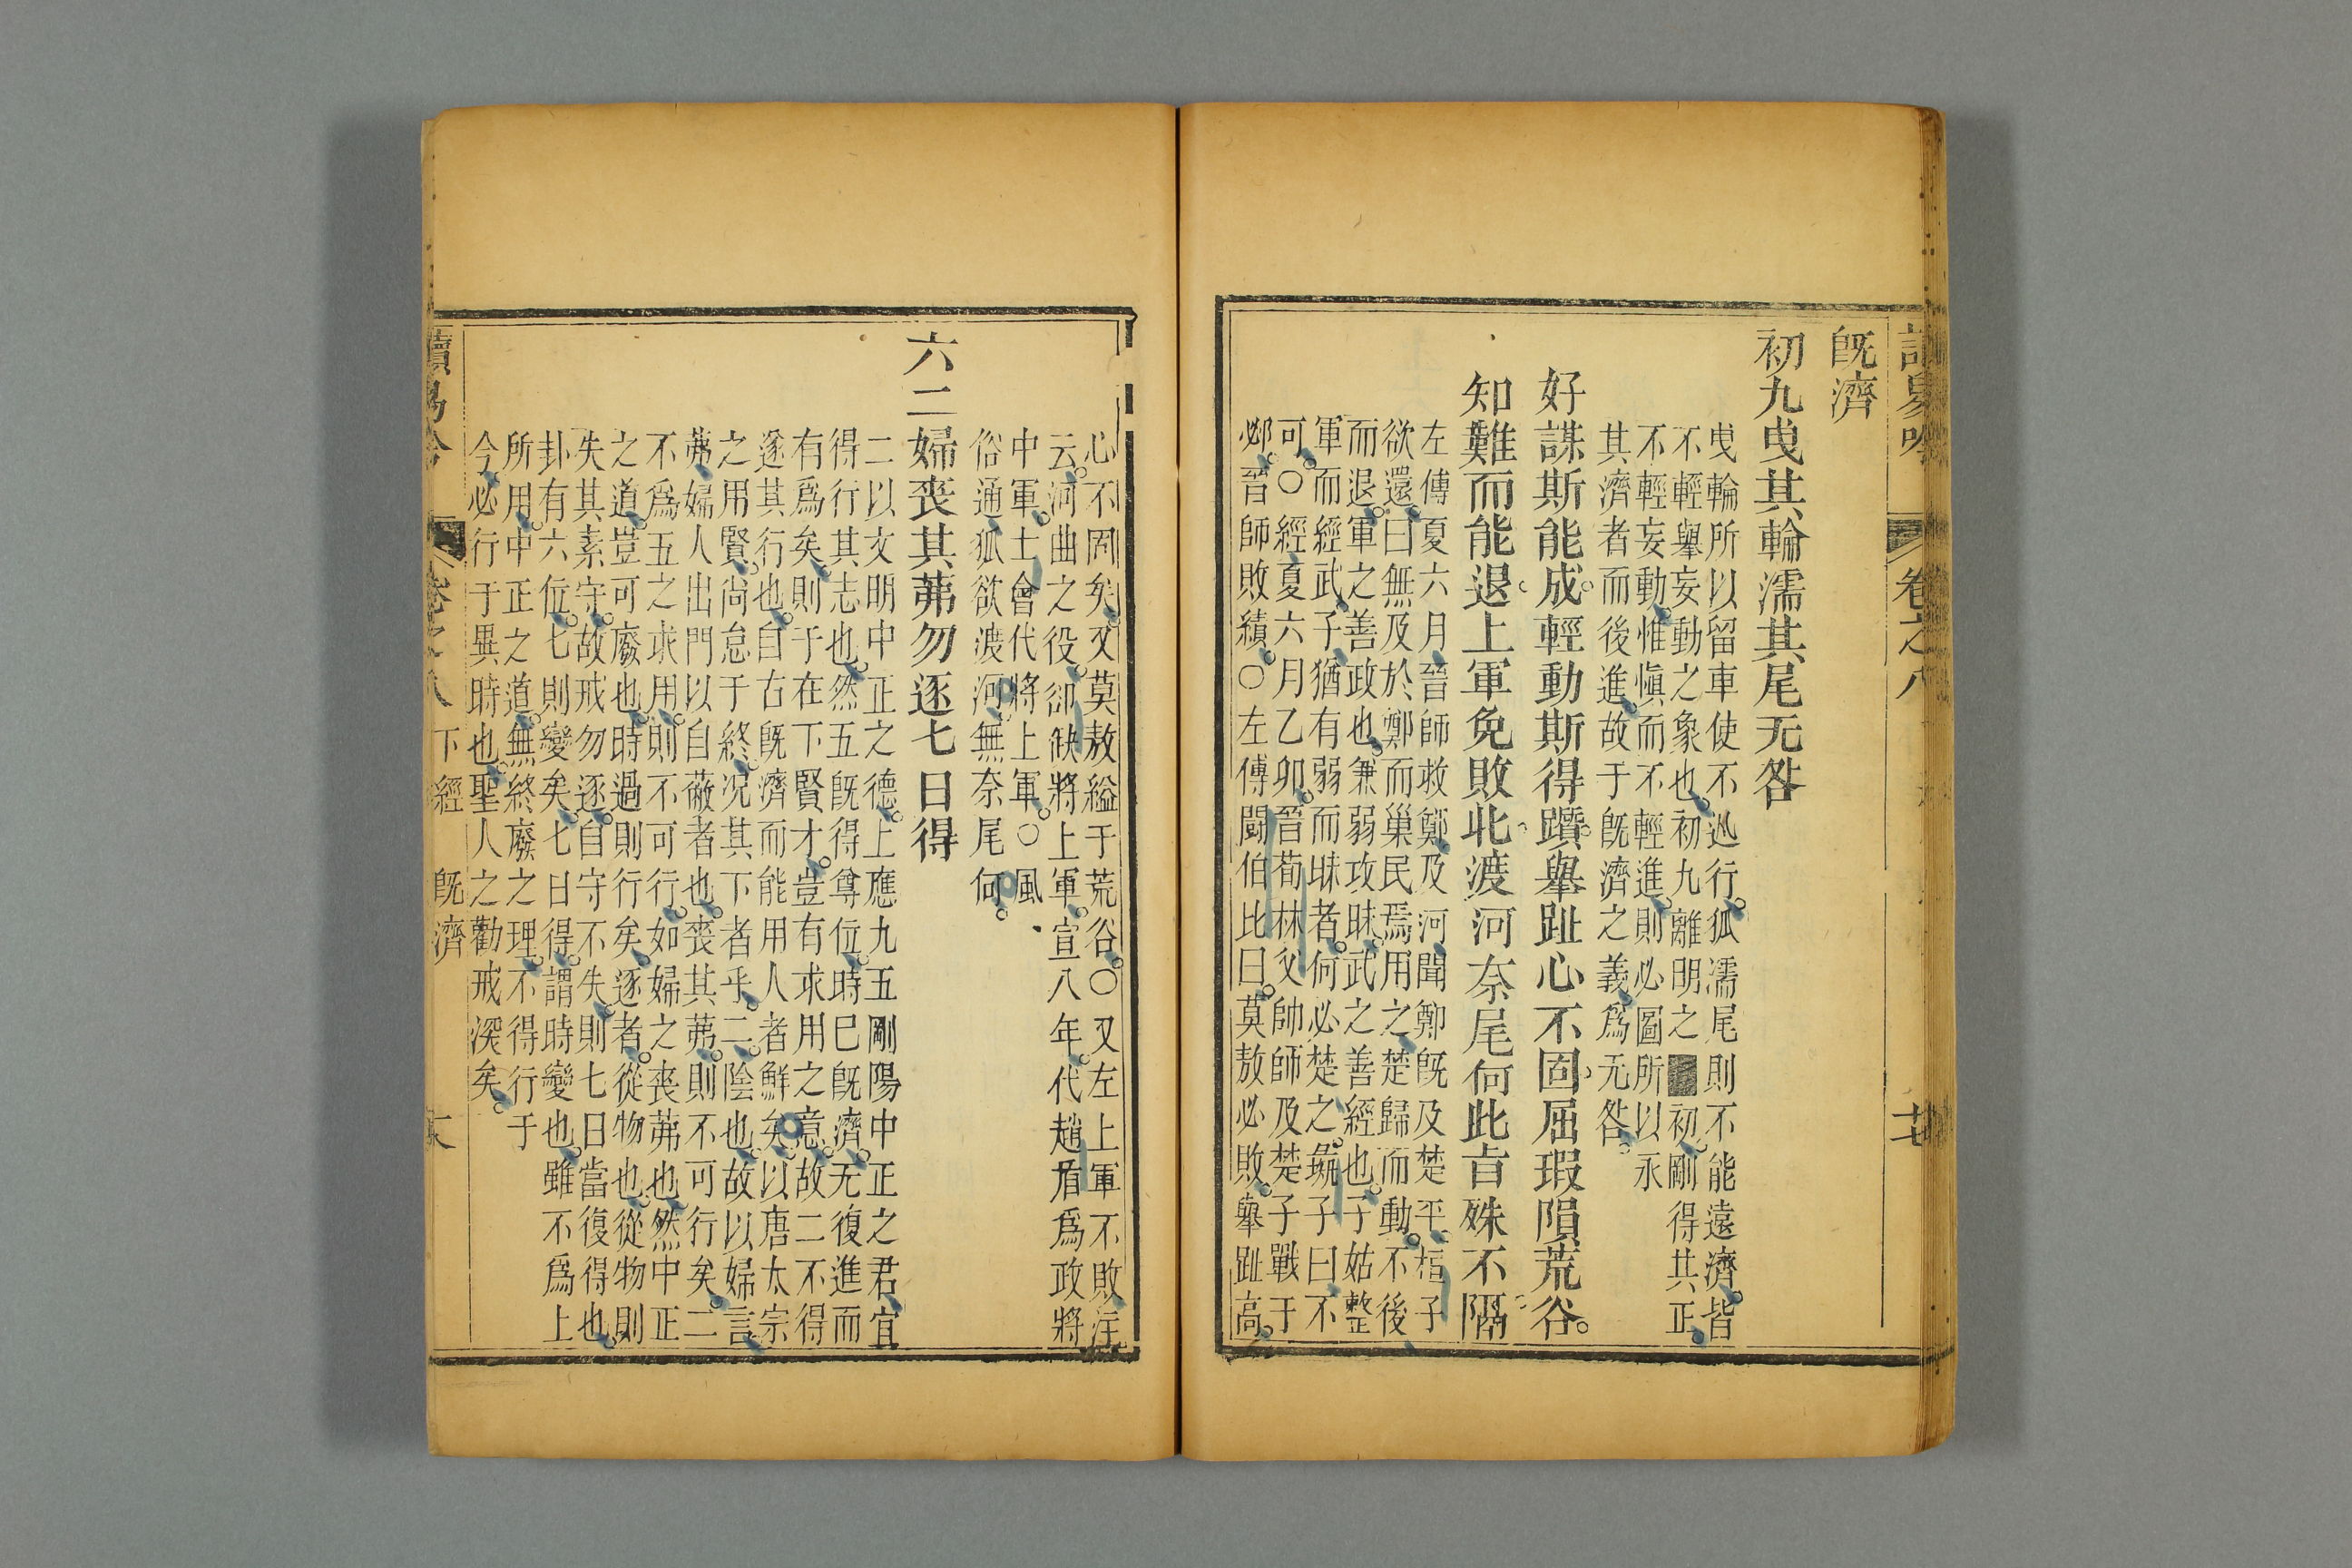 讀易吟 卷之八 廿
旣濟
初九曳其輪濡其尾无咎
曳輪所以留車使不迅行。狐濡尾則不能遠濟。皆
不輕舉妄動之象也。初九離明之 初。剛得其正。
不輕妄動。惟愼而不輕進。則必圖所以永
其濟者而後進。故于旣濟之義爲无咎。
好謀斯能成。輕動斯得躓。舉趾心不固。屈瑕隕荒谷。
知難而能退。上軍免敗北。渡河奈尾何。此㫖殊不隔。
左傳夏六月。晉師救鄭。及河。聞鄭旣及楚平。桓子
欲還。曰無及於鄭而巢民。焉用之。楚歸而動。不後
而退。軍之善政也。兼弱攻昧。武之善經也。子姑整
軍而經武。子猶有弱而昧者。何必楚之。彘子曰。不
可。○經夏六月乙卯。晉荀林父帥師及楚子戰于
邲。晉師敗績。○左傳鬭伯比曰。莫敖必敗。舉趾高。
心不固矣。又莫敖縊于荒谷。○又左上軍不敗。注
云。河曲之役。郤缺將上軍。宣八年。代趙盾爲政。將
中軍。士會代將上軍。○風
俗通。狐欲渡河。無奈尾何。
六二婦喪其茀勿逐七日得
二以文明中正之德。上應九五剛陽中正之君。宜
得行其志也。然五旣得尊位。時已旣濟。无復進而
有爲矣。則于在下賢才。豈有求用之意。故二不得
遂其行也。自古旣濟而能用人者鮮矣。以唐太宗
之用賢。尚怠于終。况其下者乎。二陰也。故以婦言
茀。婦人出門以自蔽者也。喪其茀。則不可行矣。二
不爲五之求用。則不可行。如婦之喪茀也。然中正
之道。豈可廢也。時過則行矣。逐者。從物也。從物則
失其素守。故戒勿逐。自守不失。則七日當復得也。
卦有六位。七則變矣。七日得。謂時變也。雖不爲上
所用。中正之道。無終廢之理。不得行于
今。必行于異時也。聖人之勸戒深矣。
讀易吟 卷之八 下經 旣濟